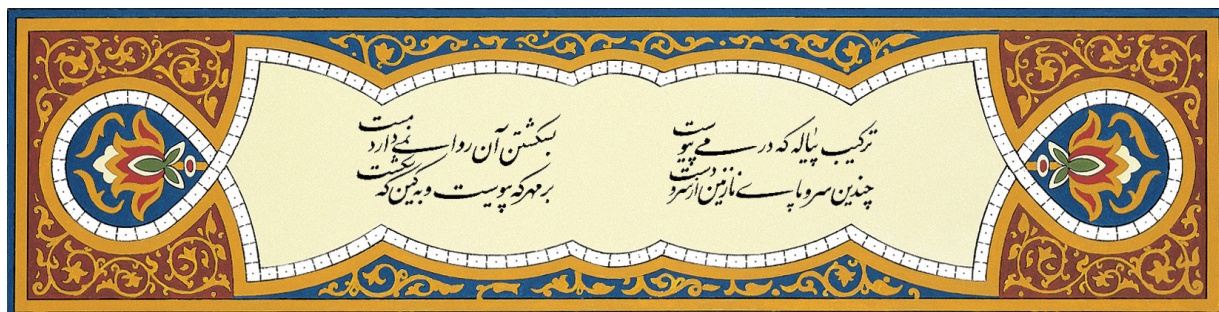 ترکیب پیاله که در می پیوست بشکستن آن روا نمی دارد مست
چندین سر و پای نازنین از سر و دست بر مهر که پیوست و به کین که شکست